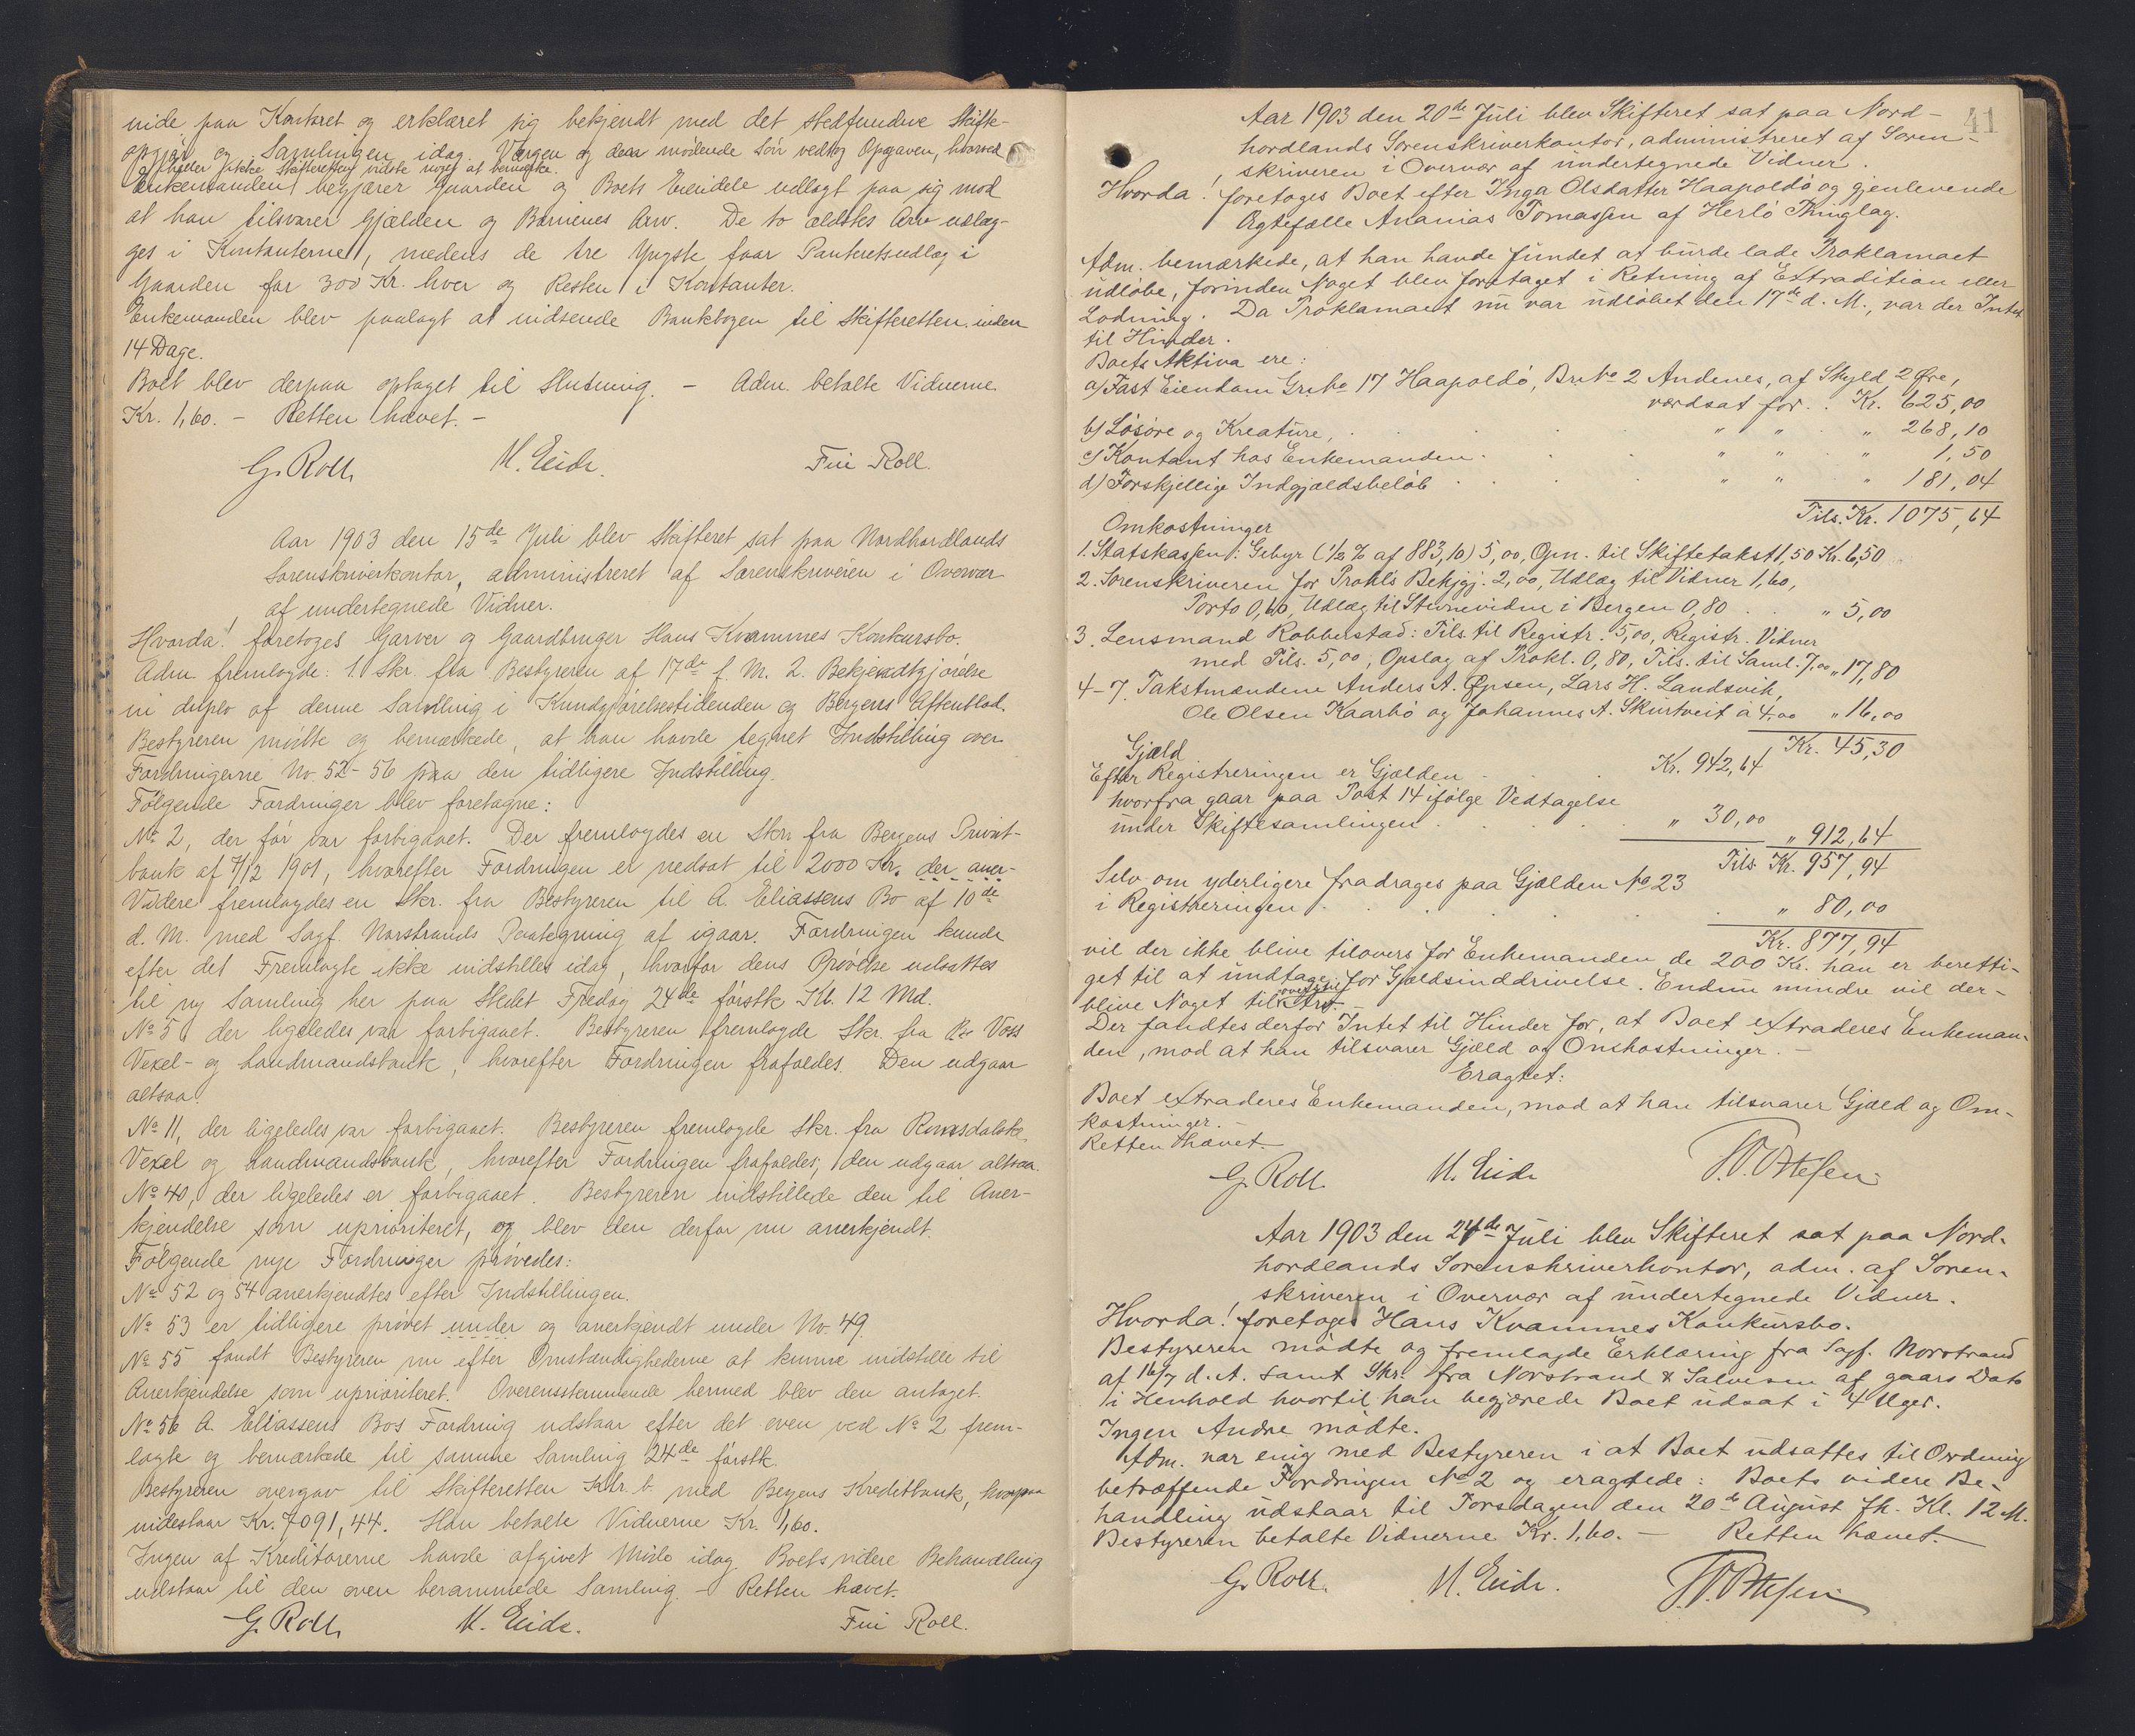 inde paa Kontoret og erklæret sig bekjendt med det stedfundne Skifte-
opgjør og Samlingen idag. Værgen og den mødende Søn vedtog Opgaven, hvorved
heller ikke Skifteretten vidste noget at bemærke.
Enkemanden begjærer Gaarden og Boets Eiendele udlagt paa sig mod
at han tilsvarer Gjælden og Børnenes Arv. De to ældstes Arv udlæg-
ges i Kontanterne, medens de tre Yngste faar Panteretsudlæg i
Gaarden for 300 Kr. hver og Resten i Kontanter.
Enkemanden blev paalagt at indsende Bankbogen til Skifteretten inden
14 Dage.
Boet blev derpaa optaget til Slutning. – Adm. betalte Vidnerne
Kr. 1,60. – Retten hævet. –
G. Roll M. Eide. Fin Roll.
Aar 1903 den 15de Juli blev Skifteret sat paa Nordhordlands
Sorenskriverkontor, administreret af Sorenskriveren i Overvær
af undertegnede Vidner.
Hvorda! foretoges Garver og Gaardbruger Hans Kvammes Konkursbo.
Adm. fremlagde: 1. Skr. fra Bestyreren af 17de f. M. 2. Bekjendtgjørelse
in duplo af denne Samling i Kundgjørelsestidenden og Bergens Aftenblad.
Bestyreren mødte og bemærkede, at han havde tegnet Indstilling over
Fordringerne No. 52–56 paa den tidligere Indstilling.
Følgende Fordringer blev foretagne:
No 2, der før var forbigaaet. Der fremlagdes en Skr. fra Bergens Privat-
bank af 7/12 1901, hvorefter Fordringen er nedsat til 2000 Kr. der aner-
Videre fremlagdes en Skr. fra Bestyreren til A. Eliassens Bo af 10de
d. M. med Sagf. Norstrands Paategning af igaar. Fordringen kunde
efter det Fremlagte ikke indstilles idag, hvorfor dens Prøvelse udsattes
til ny Samling her paa Stedet Fredag 24de førstk. Kl. 12 Md.
No 5, der ligeledes var forbigaaet. Bestyreren fremlagde Skr. fra Voss
Vexel- og Landmandsbank, hvorefter Fordringen frafaldes. Den udgaar
altsaa.
No 11, der ligeledes var forbigaaet. Bestyreren fremlagde Skr. fra Romsdalske
Vexel og Landmandsbank, hvorefter Fordringen frafaldes, den udgaar altsaa.
No 40, der ligeledes er forbigaaet. Bestyreren indstillede den til Aner-
kjendelse som uprioriteret, og blev den derfor nu anerkjendt.
Følgende nye Fordringer prøvedes:
No 52 og 54 anerkjendtes efter Indstillingen.
No 53 er tidligere prøvet under og anerkjendt under No. 49.
No 55 fandt Bestyreren nu efter Omstændighederne at kunne indstille til
Anerkjendelse som uprioriteret. Overensstemmende hermed blev den antaget.
No 56 A. Eliassens Bos Fordring udstaar efter det oven ved No 2 frem-
lagte og bemærkede til samme Samling 24de førstk.
Bestyreren overgav til Skifteretten Ktr. b. med Bergens Kreditbank, hvorpaa
indestaar Kr. 7091,44. Han betalte Vidnerne Kr. 1,60.
Ingen af Kreditorerne havde afgivet Møde idag. Boets videre Behandling
udstaar til den oven berammede Samling. – Retten hævet.
G. Roll M. Eide. Fin Roll.
41
Aar 1903 den 20de Juli blev Skifteret sat paa Nord-
hordlands Sorenskriverkontor, administreret af Soren-
skriveren i Overvær af undertegnede Vidner.
Hvorda! foretoges Boet efter Inga Olsdatter Haapoldø og gjenlevende
Ægtefælle Ananias Tomassen af Herlø Thinglag.
Adm. bemærkede, at han havde fundet at burde lade Proklamaet
udløbe, forinden Noget blev foretaget i Retning af Extradition eller
Lodning. Da Proklamaet nu var udløbet den 17de d. M., var der Intet
til Hinder.
Boets Aktiva ere:
a) Fast Eiendom Grno 17 Haapoldø, Brno 2 Andenes, af Skyld 2 Øre,
værdsat for . . Kr. 625,00
b) Løsøre og Kreature, . . . . " " " 268,10
c) Kontant hos Enkemanden . . . " " " 1,50
d) Forskjellige Indgjældsbeløb . . . . " " " 181,04
Tils. Kr. 1075,64
Omkostninger
1. Statskassen: Gebyr (1/2 % af 883,10) 5,00, Opn. til Skiftetakst 1,50 Kr. 6,50
2. Sorenskriveren for Prokl's Bekjgj. 2,00, Udlæg til Vidner 1,60,
Porto 0,60, Udlæg til Stevnevidne i Bergen 0,80 . . " 5,00
3. Lensmand Robberstad: Tils. til Registr. 5,00, Registr. Vidner
med Tils. 5,00, Opslag af Prokl. 0,80, Tils. til Saml. 7,00 " 17,80
4–7. Takstmændene Anders A. Øpsen, Lars H. Landsvik,
Ole Olsen Kaarbø og Johannes A. Skurtveit à 4,00 " 16,00
Kr. 45,30
Gjæld
Efter Registreringen er Gjælden . . . Kr. 942,64
hvorfra gaar paa Post 14 ifølge Vedtagelse
under Skiftesamlingen . . . . . " 30,00
" 912,64
Tils. Kr. 957,94
Selv om yderligere fradrages paa Gjælden No 23
i Registreringen . . . . . . " 80,00
Kr. 877,94
vil der ikke blive tilovers for Enkemanden de 200 Kr. han er beretti-
get til at undtage for Gjældsinddrivelse. Endnu mindre vil der
blive Noget tilovers til Arv. –
Der fandtes derfor Intet til Hinder for, at Boet extraderes Enkeman-
den, mod at han tilsvarer Gjæld og Omkostninger. –
Eragtet:
Boet extraderes Enkemanden, mod at han tilsvarer Gjæld og Om-
kostninger. –
Retten hævet.
G. Roll. M. Eide
Aar 1903 den 24de Juli blev Skifteret sat paa Nord-
hordlands Sorenskriverkontor, adm. af Soren-
skriveren i Overvær af undertegnede Vidner.
Hvorda! foretoges Hans Kvammes Konkursbo.
Bestyreren mødte og fremlagde Erklæring fra Sagf. Norstrand
af 16/7 d. A. samt Skr. fra Norstrand & Salvesen af gaars Dato
i Henhold hvortil han begjærede Boet udsat i 4 Uger.
Ingen Andre mødte.
Adm. var enig med Bestyreren i at Boet udsattes til Ordning
betræffende Fordringen No 2 og eragtede: Boets videre Be-
handling udstaar til Torsdagen den 20de August fk. Kl. 12 M.
Bestyreren betalte Vidnerne Kr. 1,60. – Retten hævet. –
G. Roll. M. Eide.